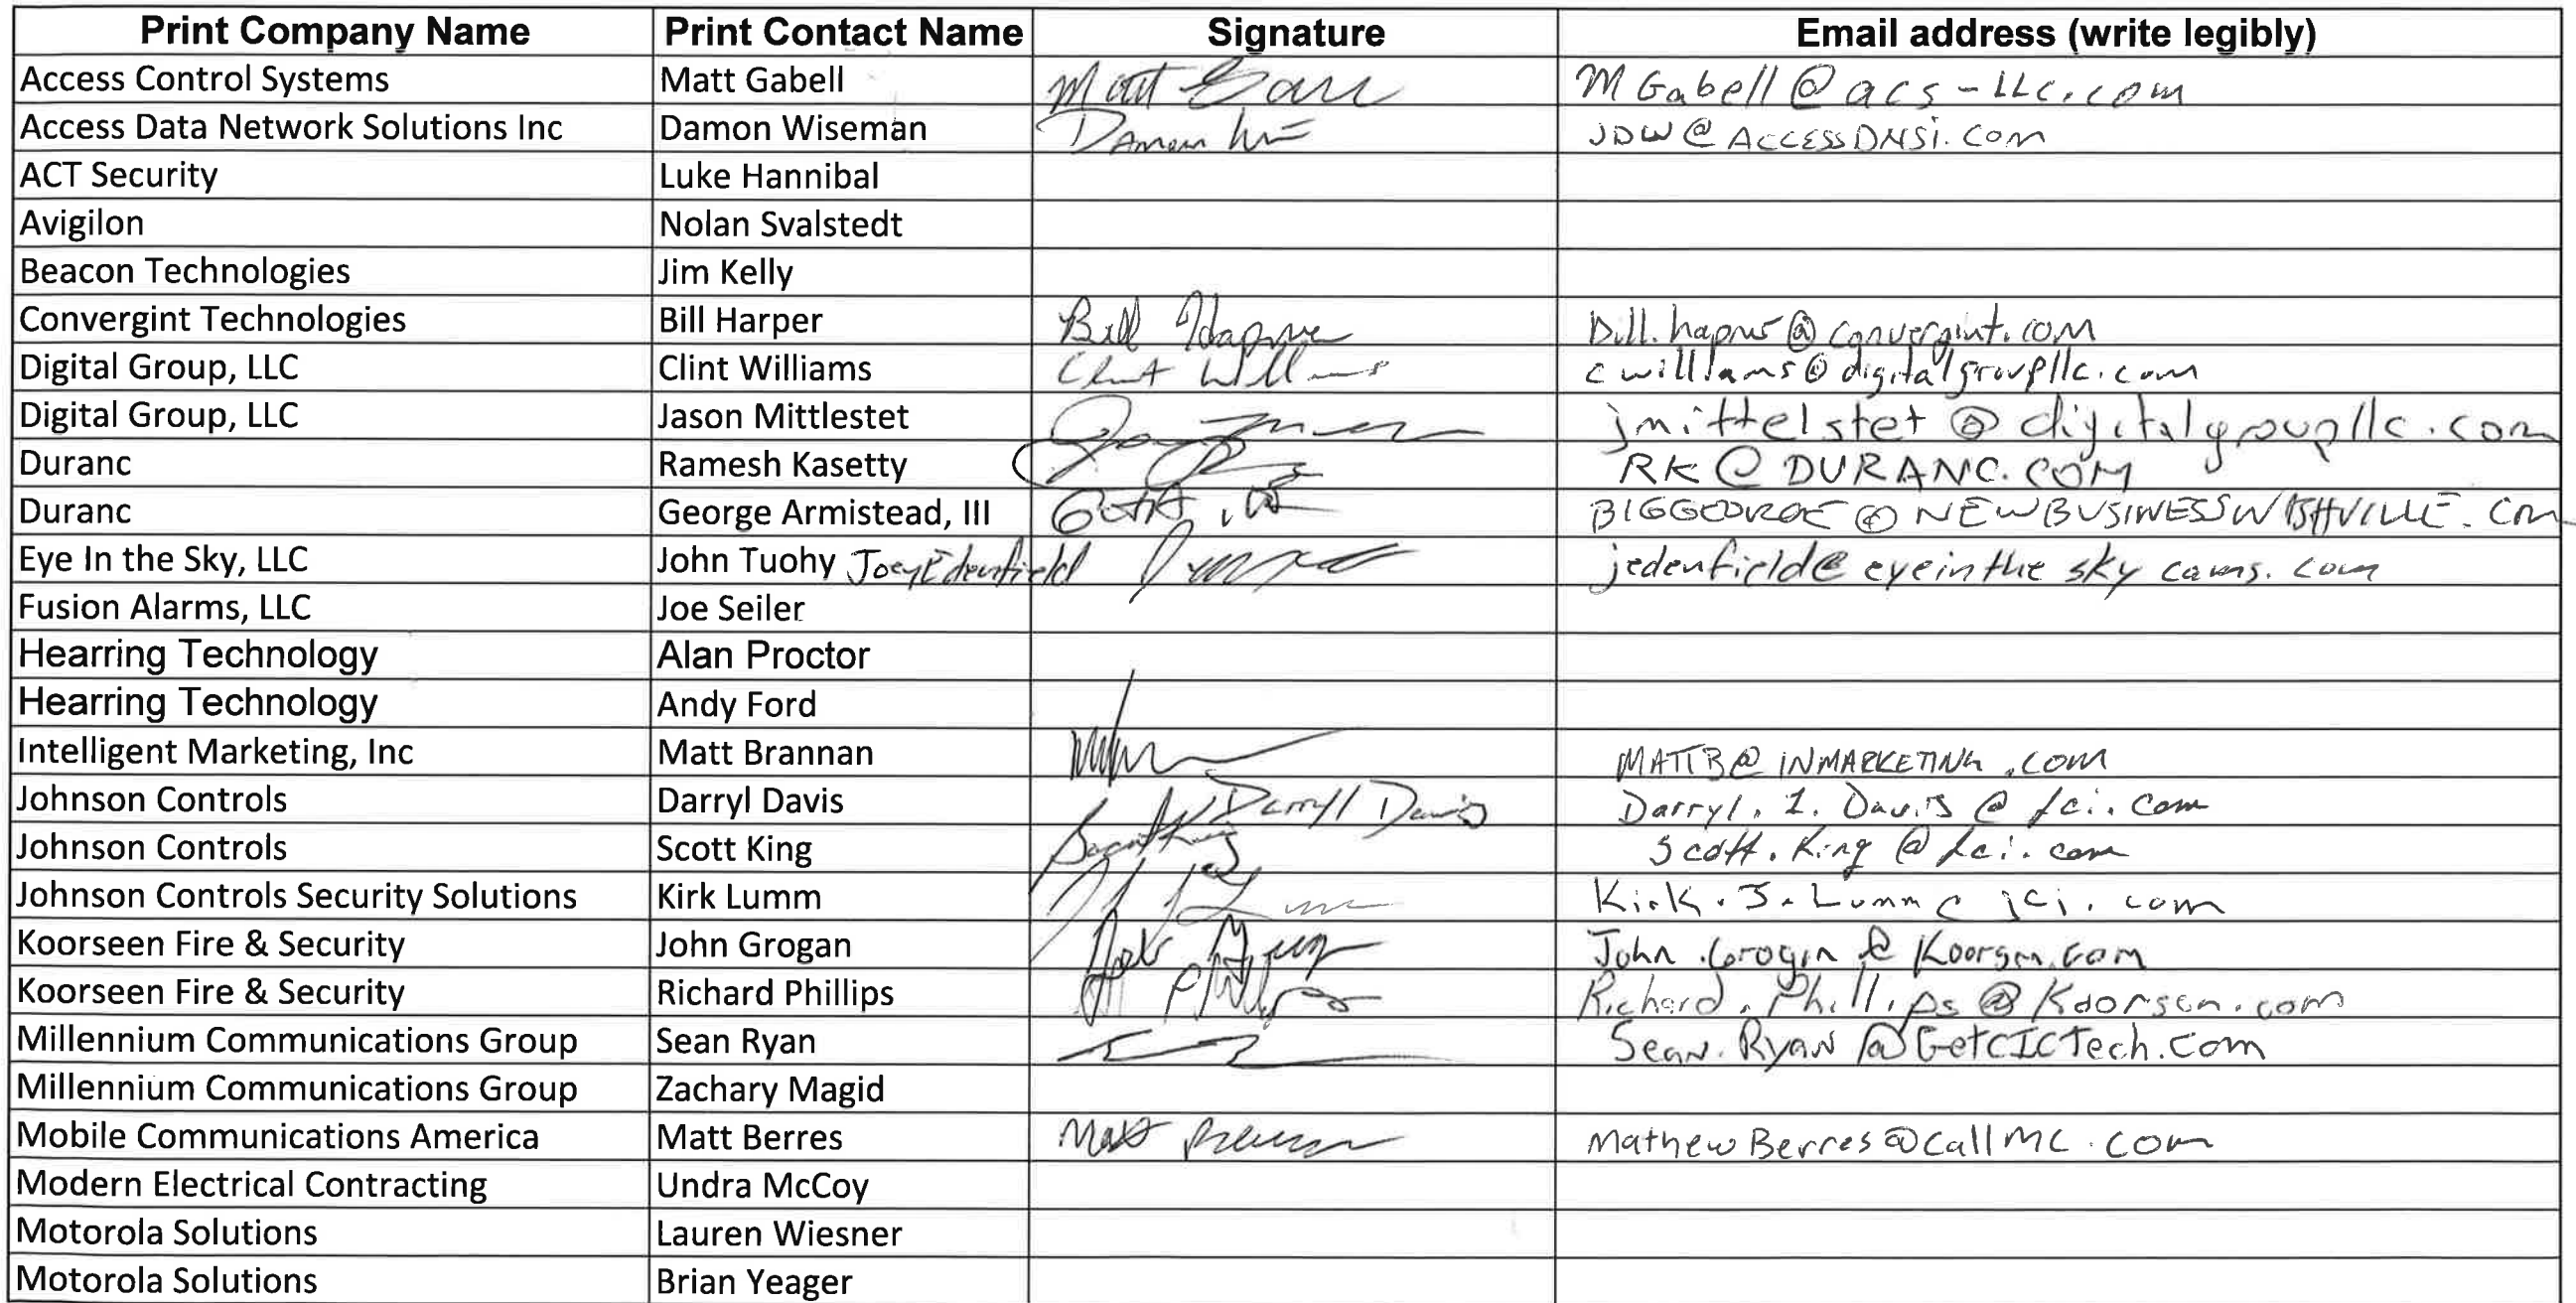 Print Company Name Print Contact Name Signature Email address (write legibly)
Access Control Systems Matt Gabell Matt MGabell@acs-LLC.com
Access Data Network Solutions Inc Damon Wiseman Damon JDW@ACCESSDNSi.COM
ACT Security Luke Hannibal
Avigilon Nolan Svalstedt
Beacon Technologies Jim Kelly
Convergint Technologies Bill Harper Bill
Digital Group, LLC Clint Williams Clint cwilliams@digitalgroupllc.com
Digital Group, LLC Jason Mittlestet jmittelstet@digitalgroupllc.com
Duranc Ramesh Kasetty RK@DURANC.COM
Duranc George Armistead, III
Eye In the Sky, LLC John Tuohy Joey Edenfield jedenfield@eyeintheskycams.com
Fusion Alarms, LLC Joe Seiler
Hearring Technology Alan Proctor
Hearring Technology Andy Ford
Intelligent Marketing, Inc Matt Brannan MATTB@INMARKETING.COM
Johnson Controls Darryl Davis Darryl Davis
Johnson Controls Scott King Scott King Scott.King@jci.com
Johnson Controls Security Solutions Kirk Lumm Kirk.J.Lumm@jci.com
Koorseen Fire & Security John Grogan
Koorseen Fire & Security Richard Phillips Phillips Richard.Phillips@Koorsen.com
Millennium Communications Group Sean Ryan Sean.Ryan@GetCICTech.com
Millennium Communications Group Zachary Magid
Mobile Communications America Matt Berres Matt MathewBerres@callMC.com
Modern Electrical Contracting Undra McCoy
Motorola Solutions Lauren Wiesner
Motorola Solutions Brian Yeager